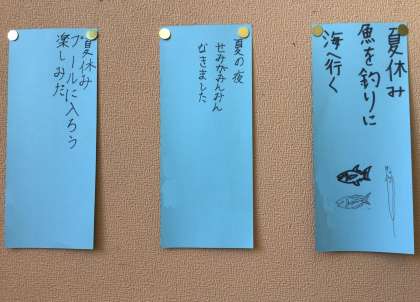 夏休み
魚を釣りに
海へ行く
夏の夜
せみがみんみん
なきました
夏休み
プールに入ろう
楽しみだ